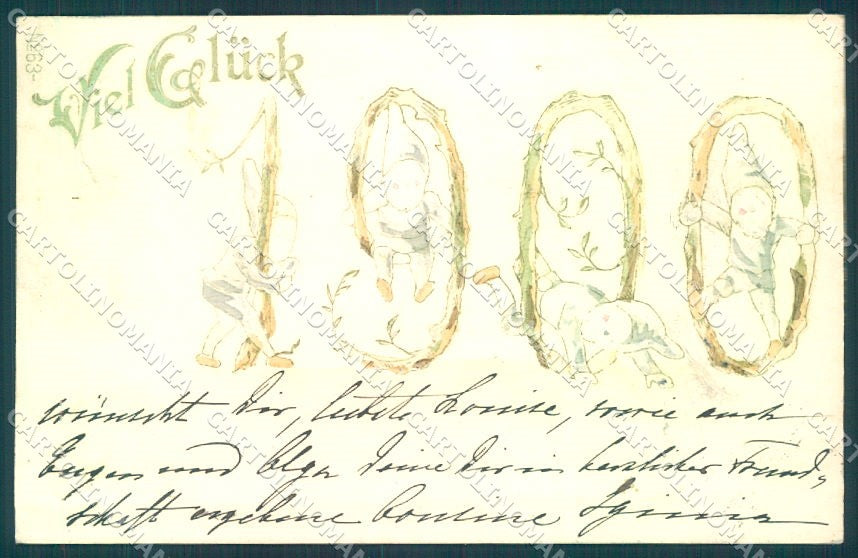 Viel Glück
1900
wünscht Dir, liebste Louise, sowie auch
Eugen und Olga Deine Dir in herzlicher Freund-
schaft ergebene Cousine